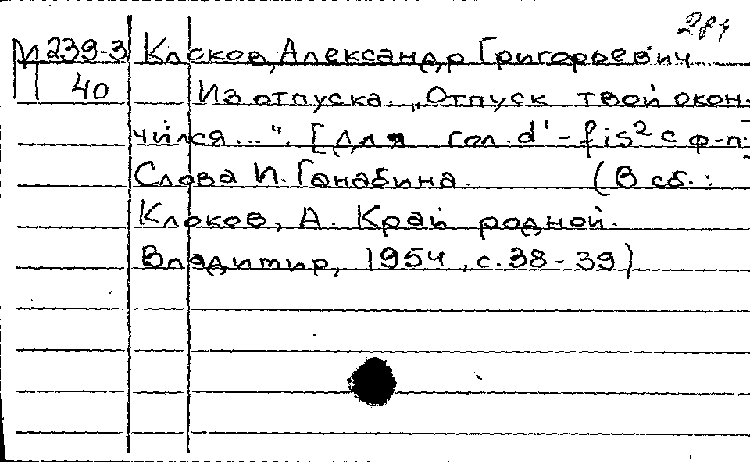 284
М 239-3 Клоков, Александр Григорьевич
П 40 Из отпуска. „Отпуск твой окон-
чился...". [Для гол. d¹-fis² с ф-п]
Слова И. Ганабина. (В сб.:
Клоков, А. Край родной.
Владимир, 1954, с.38-39)